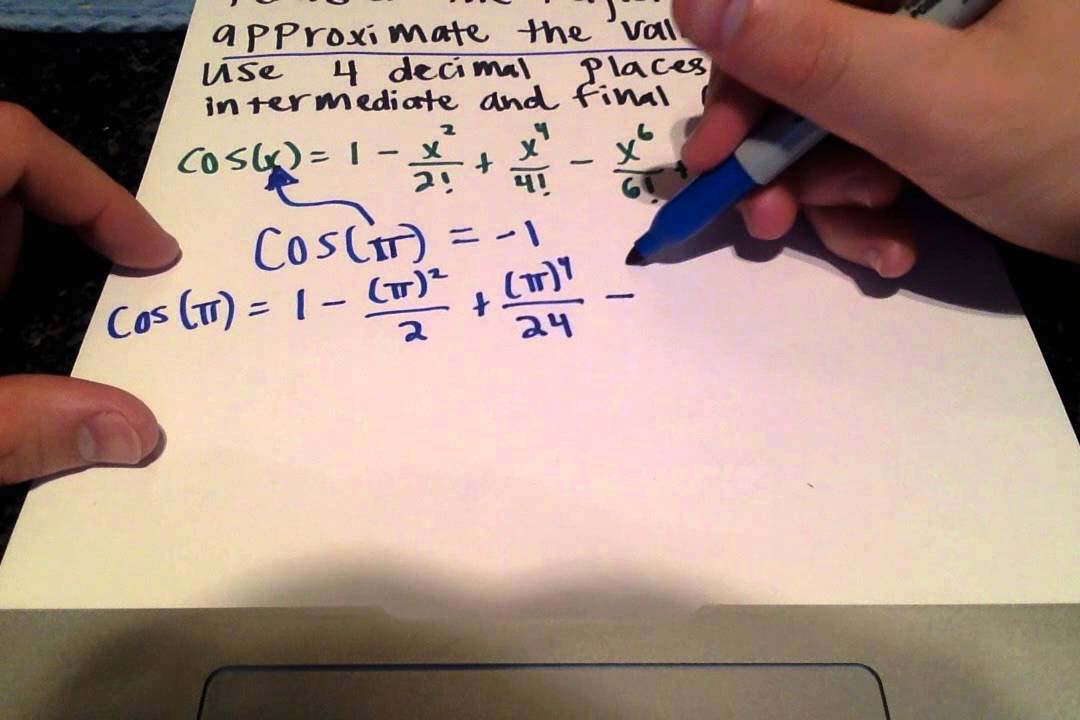 approximate the
use 4 decimal places
intermediate and final
cos(x) = 1 - x²/2! + x⁴/4! - x⁶/6! +
Cos(π) = -1
Cos(π) = 1 - (π)²/2 + (π)⁴/24 -